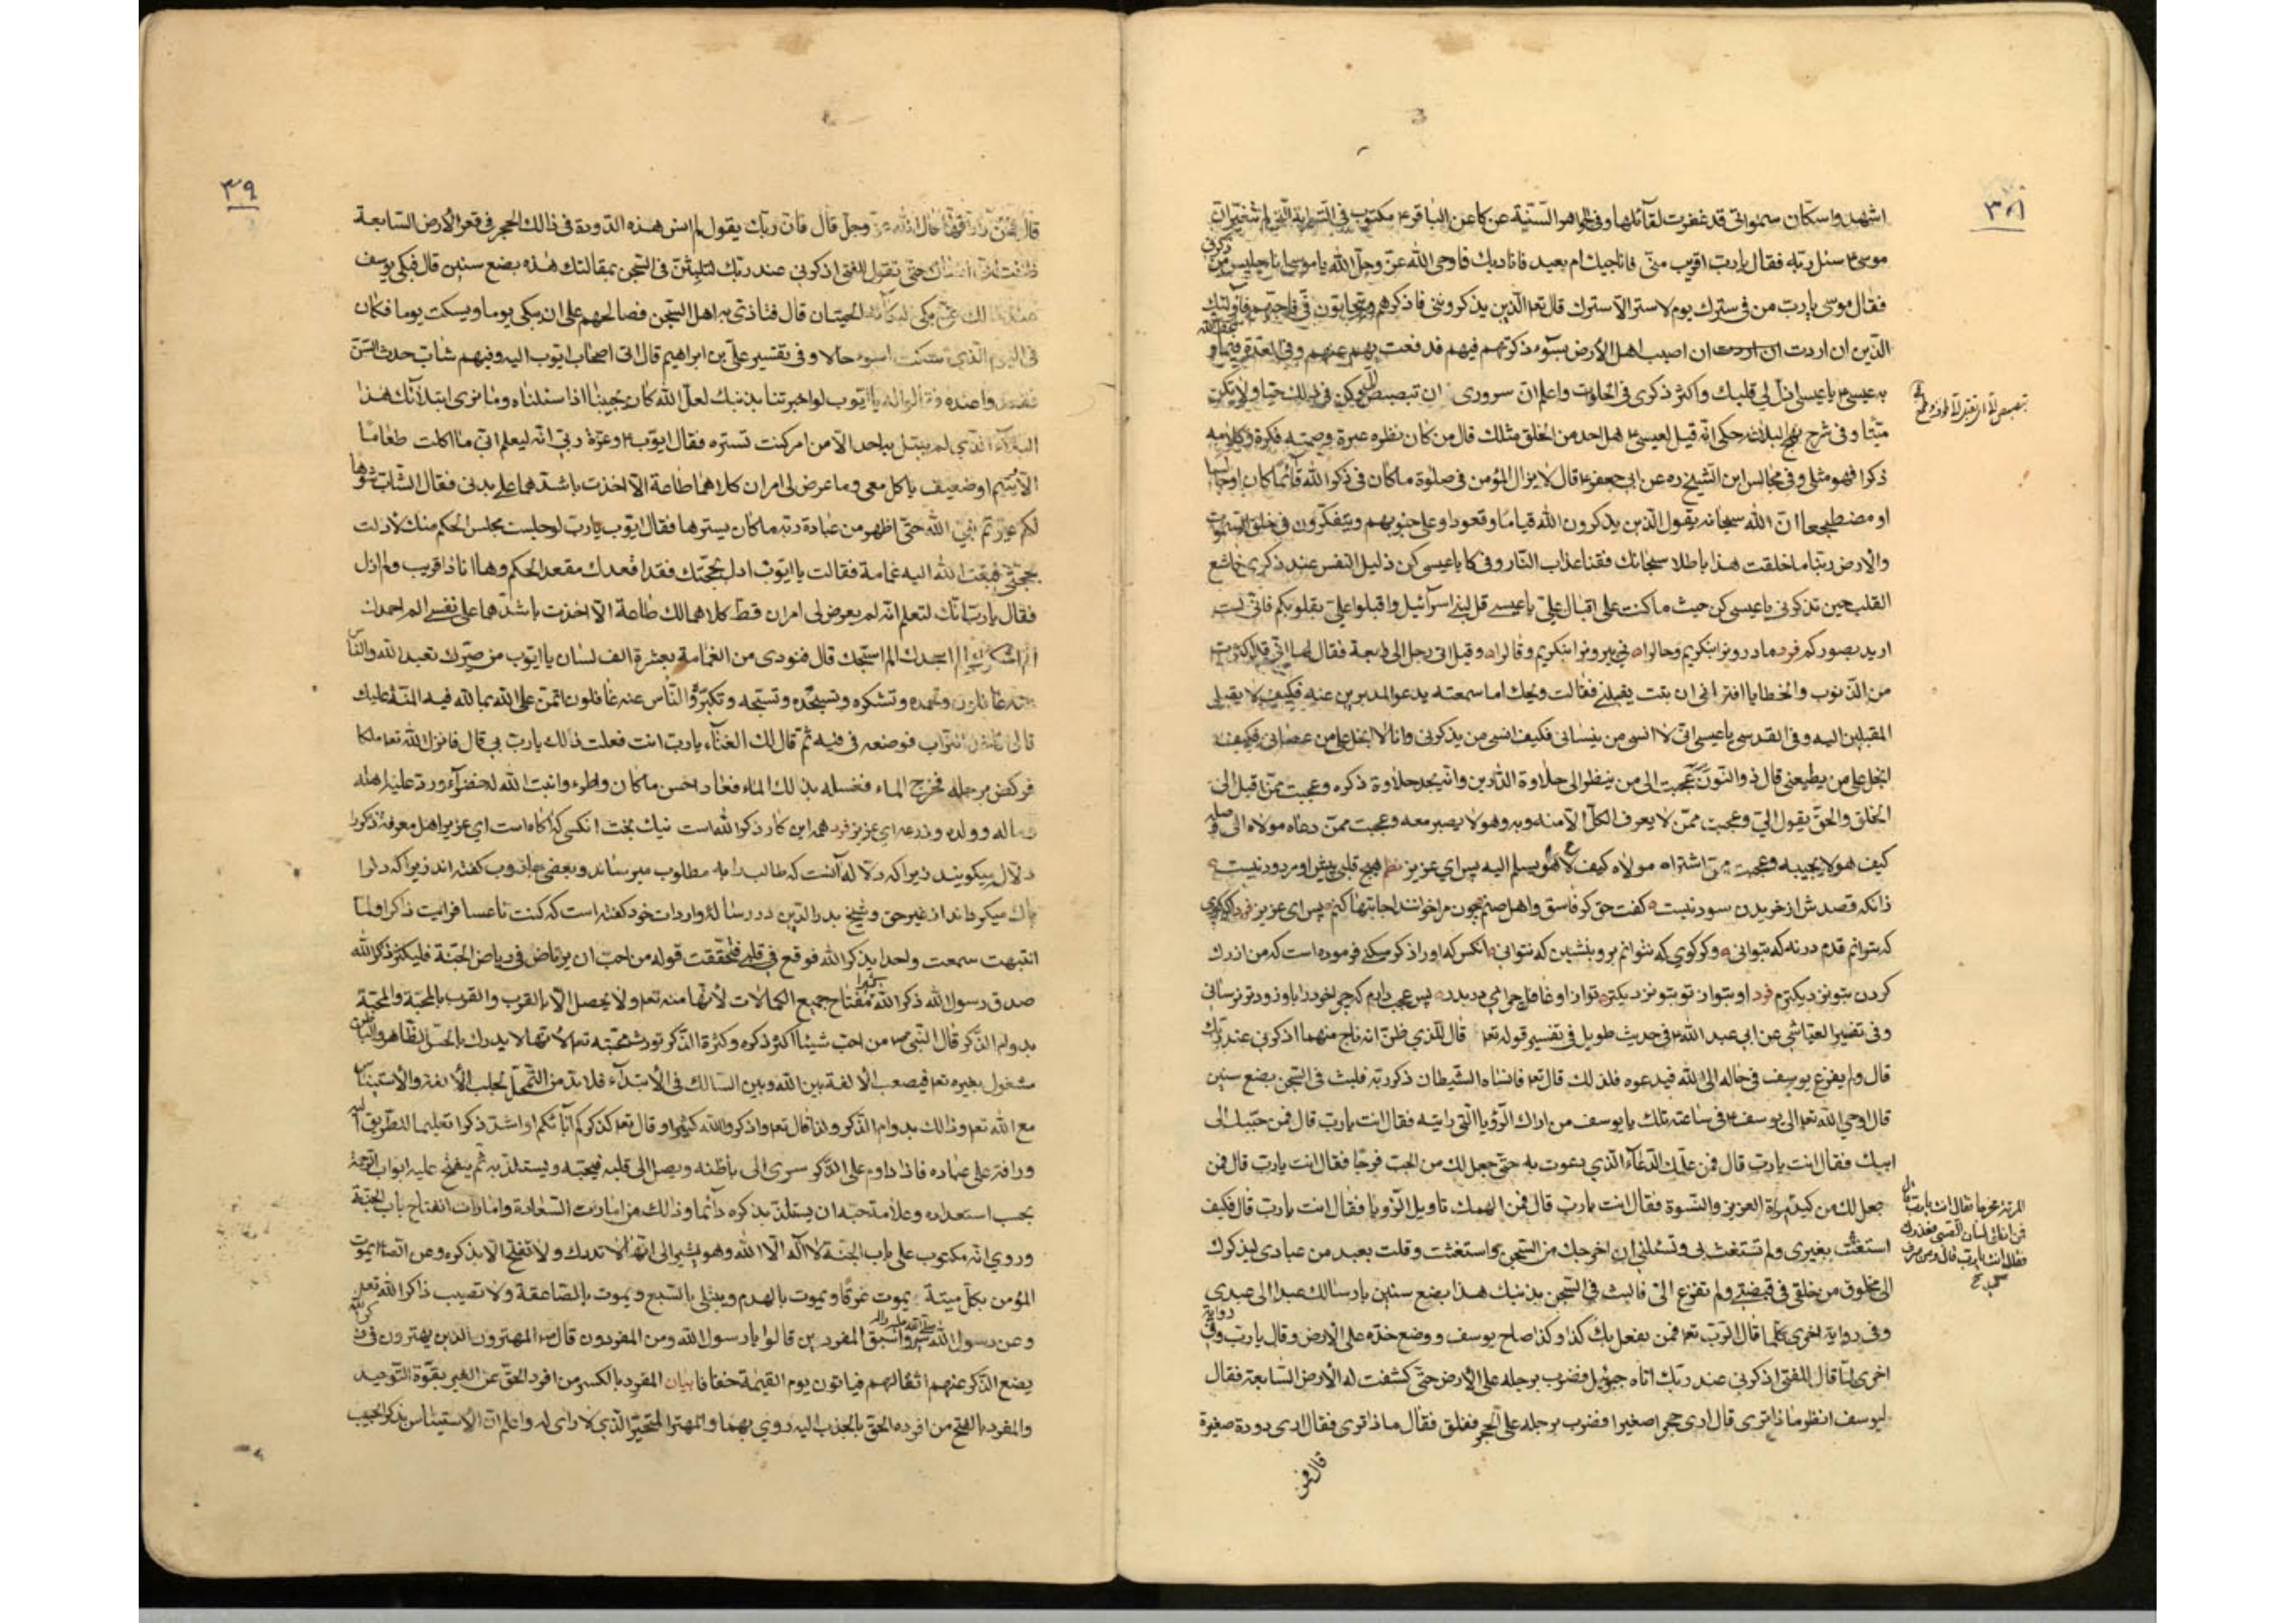 ٣٨
اشهدوا سكان سمواتی قد غفرت لقائلها وفی الجواهر السنیة عن كا عن الباقر ع مكتوب فی التوریة التی لم تتغیر ان
موسی ع سئل ربه فقال یا رب اقریب منّی فاناجیك ام بعید فانادیك فاوحی الله عزّ وجلّ الیه یا موسی انا جلیس من ذكرنی
فقال موسی یا رب من فی سترك یوم لا ستر الا سترك قال تع الّذین یذكروننی فاذكرهم ویتحابون فیّ فاحبهم فاولئك
الّذین ان اردت ان اصیب اهل الارض بسوء ذكرتهم فدفعت بهم عنهم وفی العدة فیما
یا عیسی الن لی قلبك واكثر ذكری فی الخلوات واعلم انّ سروری ان تبصبص الیّ وكن فی ذلك حیّا ولا تكن
میّتا وفی شرح نهج البلاغه حكی انه قیل لعیسی ع هل احد من الخلق مثلك قال من كان نظره عبرة وصمته فكرة وكلامه
ذكرا فهو مثلی وفی مجالس ابن الشیخ ره عن ابی جعفر ع قال لا یزال المؤمن فی صلوة ما كان فی ذكر الله قائما كان او جالسا
او مضطجعا انّ الله سبحانه یقول الّذین یذكرون الله قیاما وقعودا وعلی جنوبهم ویتفكرون فی خلق السموات
والارض ربنا ما خلقت هذا باطلا سبحانك فقنا عذاب النار وفی كا یا عیسی كن ذلیل النفس عند ذكری خاشع
القلب حین تذكرنی یا عیسی كن حیث ما كنت علی اقبال علیّ یا عیسی قل لبنی اسرائیل واقبلوا علیّ بقلوبكم فانّی لست
ارید صوركم فرد وقیل اتی رجل الی رابعة فقال لها انّی قد اكثرت
من الذنوب والخطایا افتر انی ان تبت یقبلنی فقالت ویحك اما سمعته یدعو المدبرین عنه فكیف لا یقبل
المقبلین الیه وفی القدسی یا عیسی انّی لا انسی من ینسانی فكیف انسی من یذكرنی وانا لا ابخل علی من عصانی فكیف
ابخل علی من یطیعنی قال ذو النون عجبت الی من ینظر الی حلاوة الدارین وانه یجد حلاوة ذكره وعجبت ممن اقبل الی
الخلق والحق یقول الیّ وعجبت ممّن لا یعرف الكلّ الا منه وبه وهو لا یصبر معه وعجبت ممّن دعاه مولاه الی
كیف هو لا یجیبه وعجبت ممن اشتراه مولاه كیف لا هو یسلم الیه پس ای عزیز نظم هیچ قلبی پیش او مردود نیست
زانكه قصدش از خریدن سود نیست گفت حق گر فاسق و اهل صنم چون مرا خوانند اجابتها كنم پس ای عزیز
كه بتوانم قدم در نه كه بتوانی وگر گوی كه نتوانم برو بنشین كه نتوانی انكس كه او را ذكر فرموده است كه من از رگ
گردن بتو نزدیكترم فرد او بتو از تو بتو نزدیكتر تو از او غافل چرائی در بدر پس عجب دارم كه چرا خود را باو زودتر نرسانی
وفی تفسیر العیاشی عن ابی عبد الله ع فی حدیث طویل فی تفسیر قوله تع قال للذی ظنّ انه ناج منهما اذكرنی عند ربك
قال ولم یفزع یوسف فی حاله الی الله فیدعوه فلذلك قال تع فانساه الشیطان ذكر ربه فلبث فی السجن بضع سنین
قال اوحی الله تع الی یوسف ع فی ساعته تلك یا یوسف من اراك الرؤیا التی رایته فقال انت یا رب قال فمن حبّبك الی
ابیك فقال انت یا رب قال فمن علّمك الدعاء الّذی دعوت به حتی جعل لك من الجب فرجا فقال انت یا رب قال فمن
جعل لك من كید امرأة العزیز والنسوة فقال انت یا رب قال فمن الهمك تاویل الرؤیا فقال انت یا رب قال فكیف
استغثت بغیری ولم تستغث بی وتسئلنی ان اخرجك من السجن واستغثت وقلت بعبد من عبادی لیذكرك
الی مخلوق من خلقی فی قبضتی ولم تفزع الیّ فالبث فی السجن بذنبك هذا بضع سنین بارسالك عبدا الی عبدی
وفی روایة اخری كلما قال الرب تع فمن یفعل بك كذا وكذا صاح یوسف ووضع خدّه علی الارض وقال یا رب وفی روایة
اخری لمّا قال للفتی اذكرنی عند ربك اتاه جبرئیل فضرب برجله علی الارض حتی كشفت له الارض السابعة فقال
لیوسف انظر ما ذا تری قال اری حجرا صغیرا فضرب برجله علی الحجر ففلق فقال ما ذا تری فقال اری دودة صغیرة
قال فمن
٣٩
قال فمن رازقها قال الله عزّ وجلّ قال فانّ ربك یقول لم انس هذه الدودة فی ذالك الحجر فی قعر الارض السابعة
ظننت انی انساك حتی تقول للفتی اذكرنی عند ربك لتلبثن فی السجن بمقالتك هذه بضع سنین قال فبكی یوسف
عند ذالك حتی بكی لبكائه الحیتان قال فتاذی به اهل السجن فصالحهم علی ان یبكی یوما ویسكت یوما فكان
فی الیوم الّذی یسكت اسوء حالا وفی تفسیر علیّ بن ابراهیم قال اتی اصحاب ایوب الیه وفیهم شاب حدث السّن
فقعدوا عنده وقالوا له یا ایّوب لو اخبرتنا بذنبك لعلّ الله كان یجیبنا اذا سئلناه وما نری ابتلائك هذا
البلاء الّذی لم یبتل به احد الا من امر كنت تستره فقال ایوب ع وعزّة ربّی انّه لیعلم انّی ما اكلت طعاما
الا یتیم او ضعیف یاكل معی وما عرض لی امران كلاهما طاعة الا اخذت باشدّهما علی بدنی فقال الشاب
لكم عیّرتم نبیّ الله حتی اظهر من عبادة ربه ما كان یسترها فقال ایوب یا رب لو جلست مجلس الحكم منك لادلت
بحجتی فبعث الله الیه غمامة فقالت یا ایّوب ادل بحجّتك فقد اقعدك مقعد الحكم وها انا ذا قریب ولم ازل
فقال یا رب انك لتعلم انّه لم یعرض لی امران قط كلاهما لك طاعة الا اخذت باشدّهما علی نفسی الم احمدك
الم اشكرك الم اسبحك قال فنودی من الغمامة بعشرة الف لسان یا ایّوب من صیّرك تعبد الله والناس
عنه غافلون وتحمده وتشكره وتسبّحه وتكبّره والنّاس عنه غافلون اتمنّ علی الله بما لله فیه المنّة علیك
قال فاخذ التراب فوضعه فی فیه ثمّ قال لك العتبی یا رب انت فعلت ذالك یا رب بی قال فانزل الله تع ملكا
فركض برجله فخرج الماء فغسله بذلك الماء فعاد احسن ما كان واطرء وانبت الله له خضراء وردّ علیه اهله
وماله وولده وزرعه ای عزیز فرد همه این كار ذكر الله است نیك بخت انكسی كه آگاه است ای عزیز اهل معرفة ذكر را
دلال میگویند زیرا كه دلاله آنست كه طالب را به مطلوب میرساند وبعضی جاروب گفته اند زیرا كه دل را
پاك میگرداند از غیر حق وشیخ بدر الدین در رسالۀ واردات خود گفته است كه كنت ناعسا فرایت ذاكرا ولمّا
انتبهت سمعت واحدا یذكر الله فوقع فی قلبی فتحقّقت قوله من احبّ ان یرتاض فی ریاض الجنّة فلیكثر ذكر الله
صدق رسول الله ذكر الله مفتاح جمیع الكمالات لانّها منه تع ولا یحصل الا بالقرب والقرب بالمحبّة والمحبّة
بدوام الذكر قال النبی ص من احبّ شیئا اكثر ذكره وكثرة الذكر تورث محبّته تع لانّها لا یدرك بالحسّ الظاهر والباطن
مشغول بغیره تع فیصعب الالفة بین الله وبین السالك فی الابتداء فلا بدّ من التحمّل لجلب الالفة والاستیناس
مع الله تع وذالك بدوام الذكر ولذا قال تع واذكروا الله كثیرا وقال تع كذكركم آبائكم او اشدّ ذكرا تعلیما لطریق
ورافة علی عباده فاذا داوم علی الذكر سری الی باطنه ویصل الی قلبه فیحبّه ویستلذ به ثمّ ینفتح علیه ابواب الرحمة
بحسب استعداده وعلامة حبّه ان یستلذّ بذكره دائما وذالك من امارات السعادة وامارات انفتاح باب الجنة
وروی انه مكتوب علی باب الجنّة لا اله الا الله وهو یشیر الی انها لا تدرك ولا تفتح الا بذكره وعن الصّ یموت
المؤمن بكلّ میتة یموت غرقا ویموت بالهدم ویبتلی بالسبع ویموت بالصاعقة ولا تصیب ذاكر الله تع
وعن رسول الله صلی الله علیه واله سیروا سبق المفردین قالوا یا رسول الله ومن المفردون قال ص المهترون الذین یهترون فی ذكر الله
یضع الذكر عنهم اثقالهم فیاتون یوم القیمة خفافا بیان المفرد بالكسر من افرد الحق عن الغیر بقوّة التوحید
والمفرد بالفتح من افرده الحق بالجذب الیه روی بهما والمهتر المتحیّر الّذی لا رای له واعلم انّ الاستیناس بذكر الحبیب